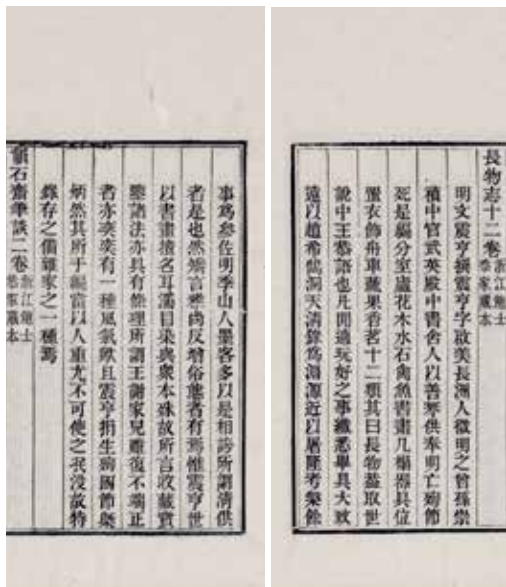 長物志十二卷 浙江鮑士恭家藏本
明文震亨撰震亨字啟美長洲人徵明之曾孫崇
禎中官武英殿中書舍人以善琴供奉明亡殉節
死是編分室廬花木水石禽魚書畫几榻器具位
置衣飾舟車蔬果香茗十二類其曰長物蓋取世
說中王恭語也凡閒適玩好之事纖悉畢具大致
遠以趙希鵠洞天清錄為淵源近以屠隆考槃餘
事為參佐明季山人墨客多以是相誇所謂清供
者是也然矯言雅尚反增俗態者有焉惟震亨世
以書畫擅名耳濡目染與衆本殊故所言收藏賞
鑒諸法亦具有條理所謂王謝家兒雖復不端正
者亦奕奕有一種風氣歟且震亨捐生殉國節槩
炳然其所手編當以人重尤不可使之泯沒故特
錄存之備雜家之一種焉
韻石齋筆談二卷 浙江鮑士恭家藏本